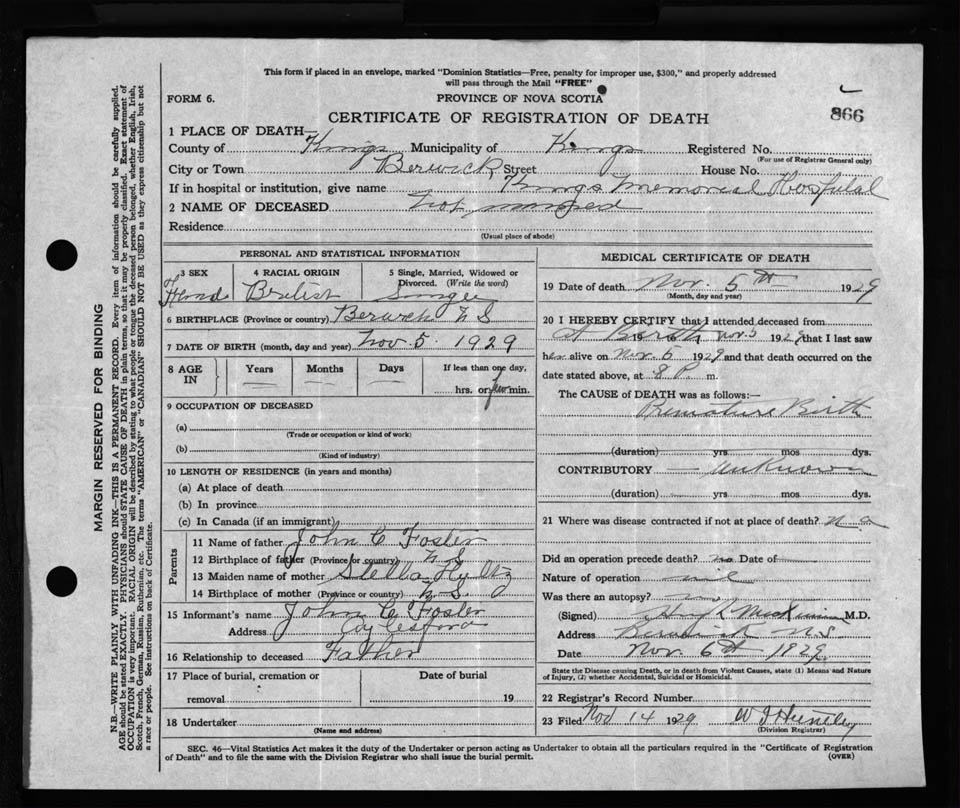 This form if placed in an envelope, marked "Dominion Statistics—Free, penalty for improper use, $300," and properly addressed
will pass through the Mail "FREE"
FORM 6. PROVINCE OF NOVA SCOTIA
866
CERTIFICATE OF REGISTRATION OF DEATH
1 PLACE OF DEATH—
County of Kings Municipality of Kings Registered No.
(For use of Registrar General only)
City or Town Berwick Street House No.
If in hospital or institution, give name Kings Memorial Hospital
2 NAME OF DECEASED Not named
Residence
(Usual place of abode)
PERSONAL AND STATISTICAL INFORMATION
3 SEX 4 RACIAL ORIGIN 5 Single, Married, Widowed or Divorced. (Write the word)
British Single
6 BIRTHPLACE (Province or country) Berwick N S
7 DATE OF BIRTH (month, day and year) Nov 5. 1929
8 AGE IN Years Months Days If less than one day,
hrs. or few min.
9 OCCUPATION OF DECEASED
(a)
(Trade or occupation or kind of work)
(b)
(Kind of industry)
10 LENGTH OF RESIDENCE (in years and months)
(a) At place of death
(b) In province
(c) In Canada (if an immigrant)
Parents
11 Name of father John C Foster
12 Birthplace of father (Province or country) N S
13 Maiden name of mother Stella Hyltz
14 Birthplace of mother (Province or country) N. S.
15 Informant's name John C Foster
Address Aylesford
16 Relationship to deceased Father
17 Place of burial, cremation or Date of burial
removal 19
18 Undertaker
(Name and address)
MEDICAL CERTIFICATE OF DEATH
19 Date of death Nov. 5th 1929
(Month, day and year)
20 I HEREBY CERTIFY that I attended deceased from
At Birth 19 to Nov 5 1929 that I last saw
her alive on Nov. 5 1929 and that death occurred on the
date stated above, at 8 P. m.
The CAUSE of DEATH was as follows:—
Premature Birth
(duration) yrs mos dys.
CONTRIBUTORY — Unknown
(duration) yrs mos dys.
21 Where was disease contracted if not at place of death?
Did an operation precede death? no Date of
Nature of operation nil
Was there an autopsy? no
(Signed) M.D.
Address Berwick N.S.
Date Nov. 6th 1929.
State the Disease causing Death, or in death from Violent Causes, state (1) Means and Nature
of Injury, (2) whether Accidental, Suicidal or Homicidal.
22 Registrar's Record Number
23 Filed Nov 14 1929 W J Huntley
(Division Registrar)
SEC. 46—Vital Statistics Act makes it the duty of the Undertaker or person acting as Undertaker to obtain all the particulars required in the "Certificate of Registration
of Death" and to file the same with the Division Registrar who shall issue the burial permit. (OVER)
MARGIN RESERVED FOR BINDING
N.B.—WRITE PLAINLY WITH UNFADING INK—THIS IS A PERMANENT RECORD. Every item of information should be carefully supplied.
AGE should be stated EXACTLY. PHYSICIANS should STATE CAUSE OF DEATH in plain terms, so that it may be properly classified. Exact statement of
OCCUPATION is very important. RACIAL ORIGIN will be described by stating to what people or tongue the deceased person belonged, whether English, Irish,
Scotch, French, German, Russian, Ruthenian, etc. The terms "AMERICAN" or "CANADIAN" SHOULD NOT BE USED as they express citizenship but not
a race or people. See instructions on back of Certificate.